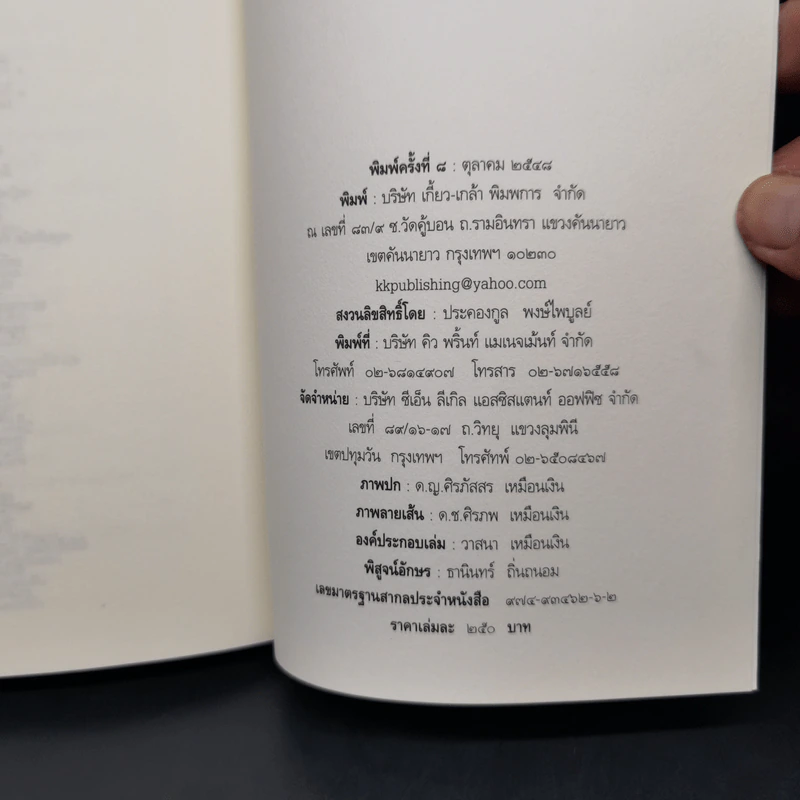 พิมพ์ครั้งที่ ๘ : ตุลาคม ๒๕๔๘
พิมพ์ : บริษัท เกี้ยว-เกล้า พิมพการ จำกัด
ณ เลขที่ ๘๓/๙ ซ.วัดคู้บอน ถ.รามอินทรา แขวงคันนายาว
เขตคันนายาว กรุงเทพฯ ๑๐๒๓๐
kkpublishing@yahoo.com
สงวนลิขสิทธิ์โดย : ประคองกูล พงษ์ไพบูลย์
พิมพ์ที่ : บริษัท คิว พริ้นท์ แมเนจเม้นท์ จำกัด
โทรศัพท์ ๐๒-๖๘๑๔๙๐๗ โทรสาร ๐๒-๖๗๑๖๕๕๘
จัดจำหน่าย : บริษัท ซีเอ็น ลีเกิล แอสซิสแตนท์ ออฟฟิซ จำกัด
เลขที่ ๘๙/๑๖-๑๗ ถ.วิทยุ แขวงลุมพินี
เขตปทุมวัน กรุงเทพฯ โทรศัทพ์ ๐๒-๖๕๐๘๔๖๗
ภาพปก : ด.ญ.ศิรภัสสร เหมือนเงิน
ภาพลายเส้น : ด.ช.ศิรภพ เหมือนเงิน
องค์ประกอบเล่ม : วาสนา เหมือนเงิน
พิสูจน์อักษร : ธานินทร์ ถิ่นถนอม
เลขมาตรฐานสากลประจำหนังสือ ๙๗๔-๙๓๔๖๒-๖-๒
ราคาเล่มละ ๒๕๐ บาท